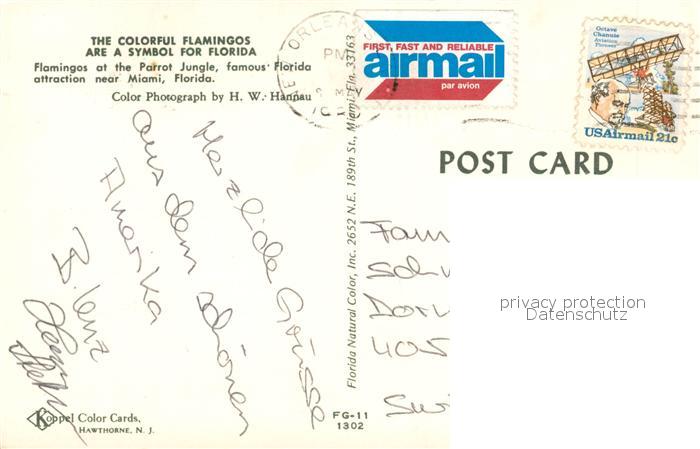 THE COLORFUL FLAMINGOS
ARE A SYMBOL FOR FLORIDA
Flamingos at the Parrot Jungle, famous Florida
attraction near Miami, Florida.
Color Photograph by H. W. Hannau
ORLEANS
PM
FIRST, FAST AND RELIABLE
airmail
par avion
Octave
Chanute
Aviation
Pioneer
USAirmail 21c
POST CARD
Herzliche Grüsse
aus dem schönen
Amerika
B. Lenz
Florida Natural Color, Inc. 2652 N.E. 189th St., Miami, Fla. 33163
Fam
Sch
Dorn
405
Swi
privacy protection
Datenschutz
Koppel Color Cards.
HAWTHORNE, N. J.
FG-11
1302